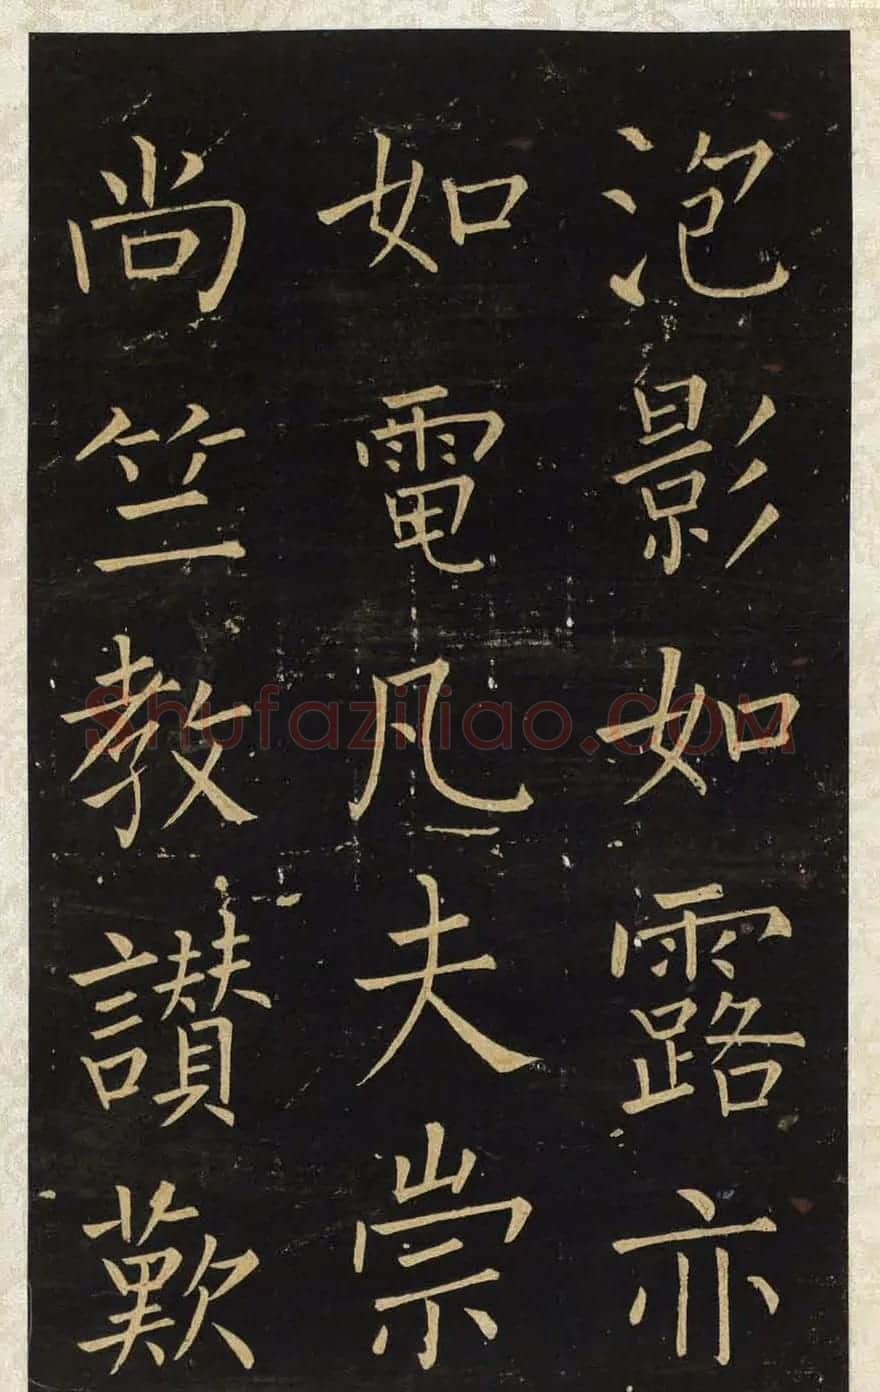 泡影如露亦
如電凡夫崇
尚竺教讃歎
Shufaziliao.COM